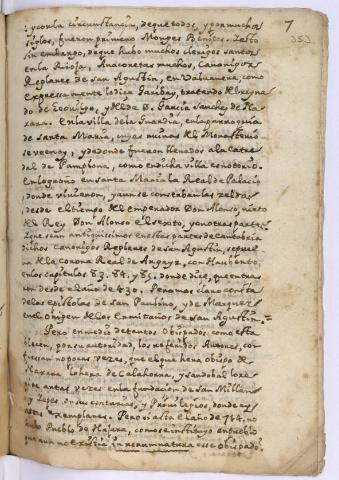 7
353
y con la circunstancia, de que todos, y por muchos
siglos, fueron primero Monges Benitos. Esto
sin embargo, de que hubo muchos clerigos santos
en la Rioja, Anacoretas muchos, Canonigos
Reglares de San Agustin, en Valvanera, como
expressamente lo dice Garibay, tratando del Reynado
de y el de D. Garcia Sanchez de Na
xara. En la villa de la Guardia, en la parroquia
de Santa Maria, cuyas ruinas del Monasterio
se veen oy, y de donde fueron llevados a la Cate
dral de Pamplona, como en dicha villa es notorio.
En Logroño en Santa Maria la Real de Palacio,
donde vivieron, y aun se conserban las zeldas,
desde el tiempo del emperador Don Alonso, nieto
del Rey Don Alonso el sexto, y en otras partes:
que sean antiquissimos en estas partes de Cantabria
dichos Canonigos Reglares de San Agustin,
de la Corona Real de con Hauberto,
en los capitulos 83. 84. y 85. donde dice, que entra
ron desde el año de 430. Pero mas claro consta
de las epistolas de San Paulino, y de Marquez
en el Origen de los Ermitaños de San Agustin.
Pero en medio de tantos Obispados, como esta
blecen, por su autoridad, los referidos Autores, con
fiessan no pocas vezes, que el que era Obispo de
Naxera lo hera de Calahorra, y Sandobal lo re
pite artas vezes en la fundacion de San Millan
y Yepes en sus centurias, y Privilegios, donde
exemplares. Pero si asta el año de 744. no
hubo Pueblo de Najara, como se instituyó en pueblo
que aun no existia in rerum natura ese Obispado?